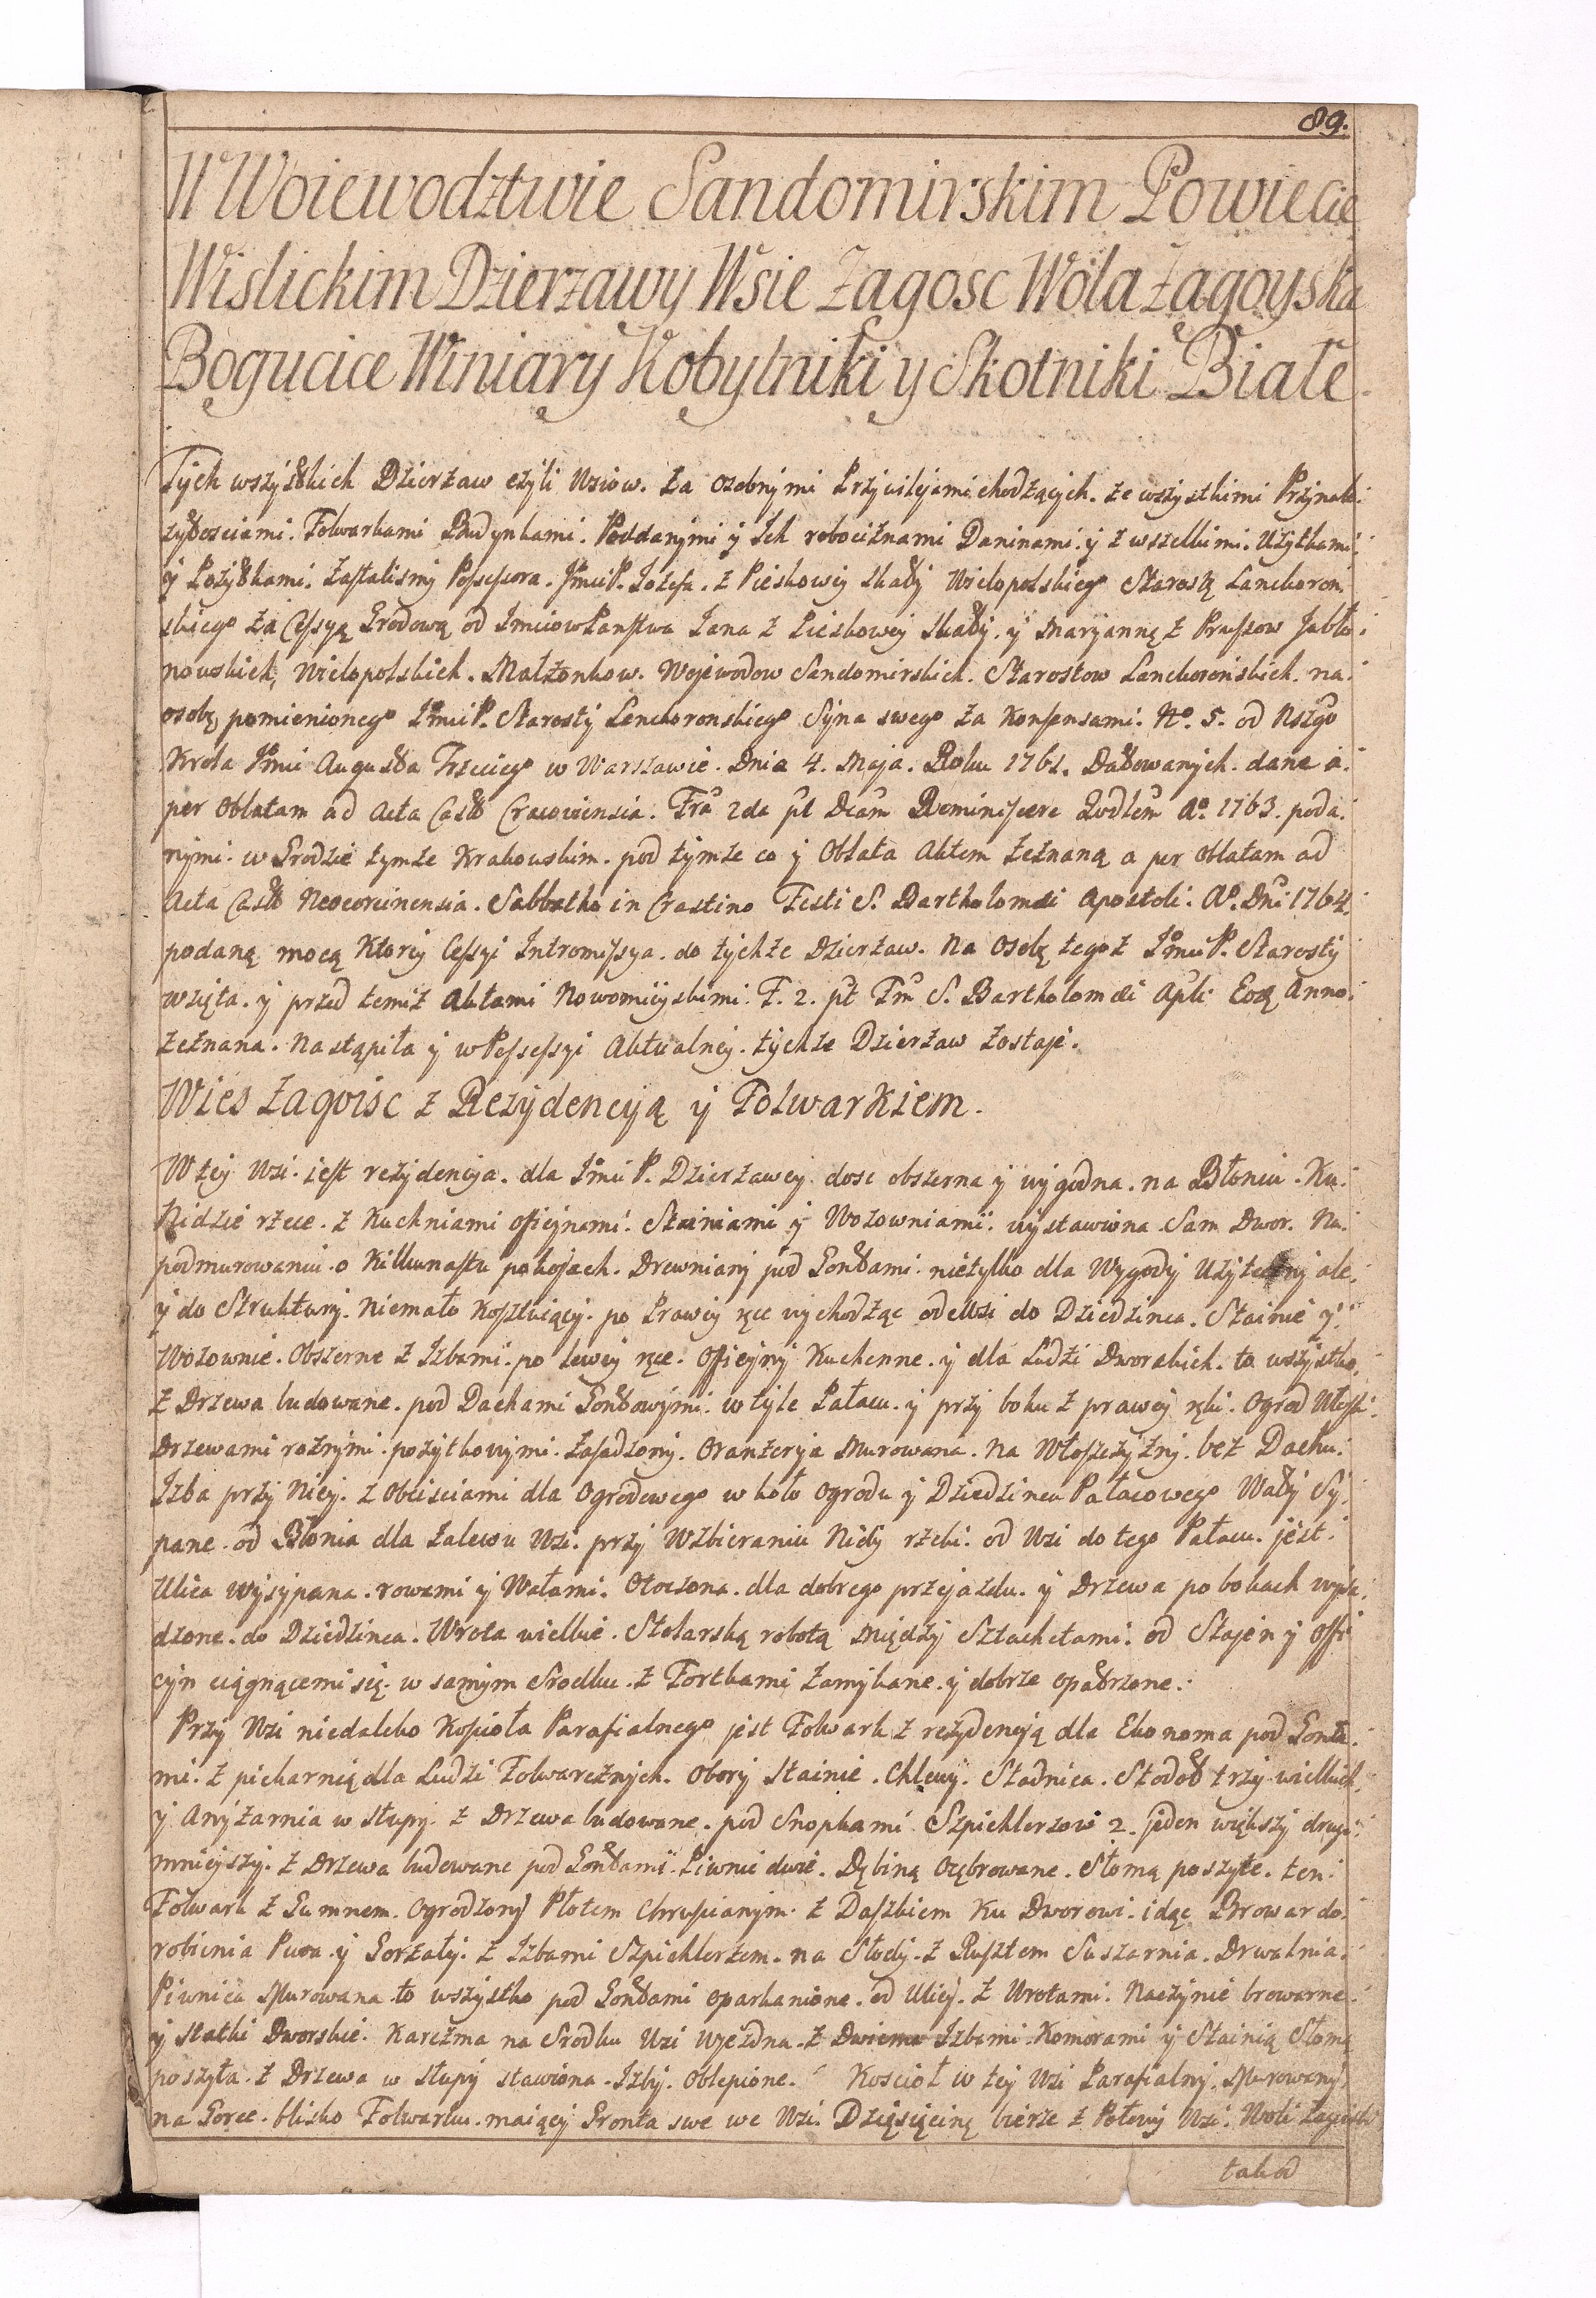 89.
W Woiewodztwie Sandomirskim Powiecie
Wislickim Dzierzawy Wsie Zagosc Wola Zagoyska
Bogucice Winiary Kobylniki y Skotniki Białe.
Tych wszystkich Dzierzaw czyli Wsiow. za osobnymi Przywilejami chodzących. ze wszystkimi Przynale:
zytosciami. Folwarkami Budynkami. Poddanymi y Ich robociznami Daninami. y z wszelkimi. Uzytkami:
y Pozytkami. Zastalismy Possessora. JmciP. Jozefa. z Pieskowey Skały Wielopolskiego Starostę Lanckoron
skiego za Cessyą Grodową od Imciow Panstwa Jana z Pieskowey Skały. y Maryannę z Prussow Jabło:
nowskich, Wielopolskich. Małzonkow. Wojewodow Sandomirskich. Starostow Lanckorońskich. na:
osobę pomienionego JmciP. Starosty Lanckoronskiego Syna swego za Konsensami. No. 5. od Nszgo
Krola Jmci Augusta Trzeciego w Warszawie. Dnia 4. Maja. Roku 1761. Datowanych. dane à:
per Oblatam ad Acta Castr Cracoviensia. Fra 2da pt Dcam Reminiscere Qudlem Ao. 1763. poda:
nymi. w Grodzie tymze Krakowskim. pod tymze co y Oblata Aktem zeznaną a per oblatam ad
Acta Castr Neocorcinensia. Sabbatho in Crastino Festi S. Bartholomæi Apostoli. Ao. Dni 1764.
podaną mocą Ktorey Cessyi Intromissya. do tychze Dzierzaw. Na Osobę tegoz JmciP. Starosty
wzięta. y przed temiz Aktami Nowomieyskimi. F. 2. pt Fm S. Bartholomæi Apli Eodę Anno:
zeznana. Nastąpiła y w Possessyi Aktualney. tychze Dzierzaw zostaje.
Wies Zagoisc z Rezydencyą y Folwarkiem.
W tey Wsi. jest rezydencya. dla JmciP. Dzierzawcy dosc obszerna y wygodna. na Błoniu. Ku:
Nidzie rzece. z Kuchniami oficynami. Stainiami y Wozowniami. wystawiona Sam Dwor. Na:
podmurowaniu. o Kilkunastu pokojach. Drewniany pod Gontami. nietylko dla Wygody Uzyteczny ale:
y do Struktury. Niemało Kosztuiący. po Prawey ręce wychodząc od Wsi do Dziedzinca. Stainie y:
Wozownie. Obszerne z Izbami. po lewey ręce. Oficyny Kuchenne. y dla Ludzi Dworskich. to wszystko
z Drzewa budowane. pod Dachami Gontowymi. w tyle Pałacu. y przy boku z prawey ręki. Ogrod Włoski:
Drzewami roznymi. pozytkowymi. zasadzony. Oranzerya Murowana. Na Włoszczyzny. bez Dachu.
Izba przy Niey. z Obeisciami dla Ogrodowego w koło Ogrodu y Dziedzinca Pałacowego Wały Sy:
pane. od Błonia dla zalewu Wsi. przy Wzbieraniu Nidy rzeki. od Wsi do tego Pałacu. jest:
Ulica Wysypana. rowami y Wałami. Otoczona. dla dobrego przejazdu. y Drzewa po bokach wysa:
dzone. do Dziedzinca. Wrota wielkie. Stolarską robotą między Sztachetami. od Stajen y Offi
cyn ciągnącemi się. w samym Srodku. z Fortkami zamykane. y dobrze opatrzone.
Przy Wsi niedaleko Kosciola Parafialnego jest Folwark z rezydencyą dla Ekonoma pod Gonta.
mi. z piekarnią dla Ludzi Folwarcznych. Obory Stainie. Chlewy. Stadnica. Stodoł trzy wielkich.
y Anyzarnia w słupy. z Drzewa budowane. pod Snopkami Szpichlerzow 2. jeden większy drugi:
mnieyszy. z Drzewa budowane pod Gontami. Piwnic dwie. Dębiną Ocębrowane. Słomą poszyte. ten:
Folwark z Gumnem. Ogrodzony Płotem Chruscianym. z Daszkiem Ku Dworowi. idąc Browar do.
robienia Piwa. y Gorzałky. z Izbami Szpichlerzem. na Słody. z Rusztem Suszarnia. Drwalnia.
Piwnica Murowana. to wszystko pod Gontami oparkanione. od Ulicy. z Wrotami. Naczynie browarne:
y Statki Dworskie. Karczma na Srodku Wsi Wjezdna. z Dwiema Izbami. Komorami y Stainią Słomą
poszyta. z Drzewa w słupy stawiona. Izby. Oblepione. Kosciół w tey Wsi Parafialny. Murowany.
na Gorce. blisko Folwarku. maiący Gronta swe we Wsi. Dziesięcinę bierze z Połowy Wsi. Woli Zagoiski
takod